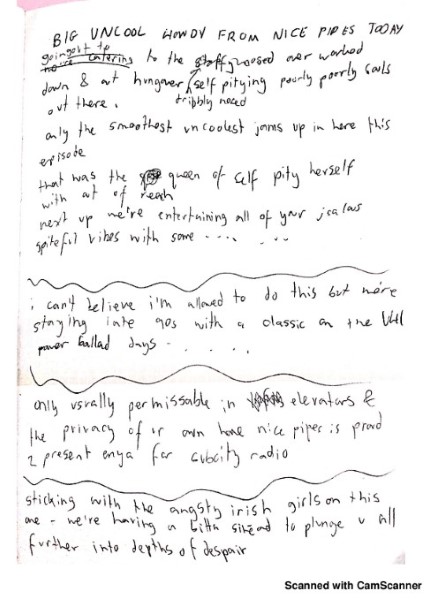 BIG UNCOOL HOWDY FROM NICE PIPES TODAY
going out to
we're catering to the stuffy nosed over worked
down & out hungover self pitying poorly poorly souls
dribbly nosed
out there.
only the smoothest uncoolest jams up in here this
episode
that was the queen of self pity herself
with out of reach
next up we're entertaining all of your jealous
spiteful vibes with some .... . .. .
i can't believe i'm allowed to do this but we're
staying late 90s with a classic on the VHI
power ballad days - . . . . .
only usually permissable in elevators &
the privacy of ur own home nice pipes is proud
2 present enya for cubcity radio
sticking with the angsty irish girls on this
one - we're having a bitta sinead to plunge u all
further into depths of despair
Scanned with CamScanner